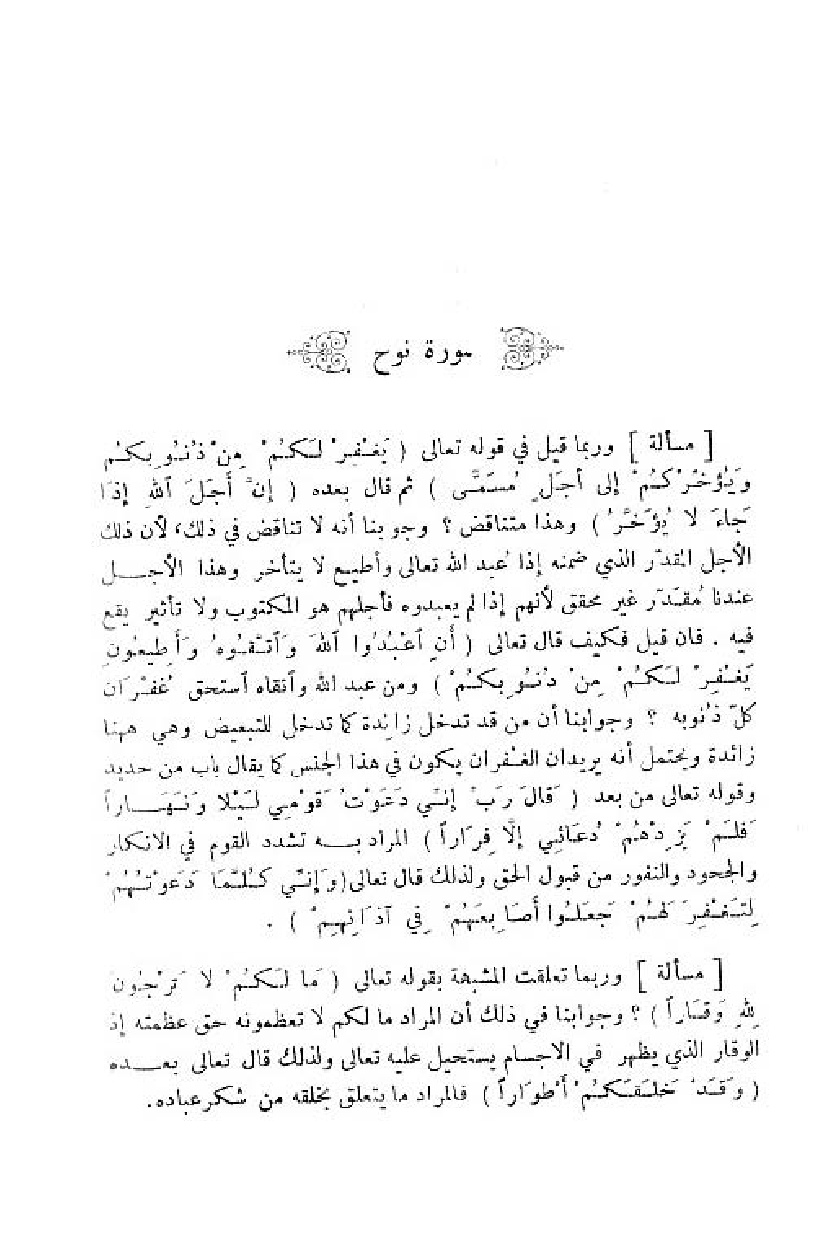 سورة نوح
[ مسألة ] وربما قيل في قوله تعالى ( يَغْفِرْ لَكُمْ مِنْ ذُنُوبِكُمْ
وَيُؤَخِّرْكُمْ إلى أجَلٍ مُسَمًّى ) ثم قال بعده ( إنَّ أَجَلَ اللهِ إذَا
جَاءَ لا يُؤَخَّرُ ) وهذا متناقض ؟ وجوبنا أنه لا تناقض في ذلك، لأن ذلك
الأجل المقدّر الذي ضمنه إذا عُبد الله تعالى وأطيع لا يتأخر وهذا الأجـــل
عندنا مُقدّر غير محقق لأنهم إذا لم يعبدوه فأجلهم هو المكتوب ولا تأثير يقع
فيه . فان قيل فكيف قال تعالى ( أَنِ اعْبُدُوا اللهَ وَاتَّقُوهُ وَأَطِيعُونِ
يَغْفِرْ لَكُمْ مِنْ ذُنُوبِكُمْ ) ومن عبد الله وأتقاه أستحق غُفْرَان
كلّ ذُنوبه ؟ وجوابنا أن من قد تدخل زائدة كما تدخل للتبعيض وهي ههنا
زائدة ويحتمل أنه يريدان الغُفران يكون في هذا الجنس كما يقال باب من حديد
وقوله تعالى من بعد ( قَالَ رَبِّ إنِّي دَعَوْتُ قَوْمِي لَيْلا وَنَهَــاراً
فَلَمْ يَزِدْهُمْ دُعَائِي إلَّا فِرَاراً ) المراد بــه تشدد القوم في الانكار
والجحود والنفور من قبول الحق ولذلك قال تعالى(وَإنِّي كُلَّمَا دَعَوْتُهُمْ
لِتَغْفِرَ لَهُمْ جَعَلُوا أَصَابِعَهُمْ فِي آذَانِهِمْ ) .
[ مسألة ] وربما تعلقت المشبهة بقوله تعالى ( مَا لَكُمْ لا تَرْجُونَ
لِلهِ وَقَاراً ) ؟ وجوابنا في ذلك أن المراد ما لكم لا تعظمونه حق عظمته إذ
الوقار الذي يظهر في الاجسام يستحيل عليه تعالى ولذلك قال تعالى بعـــده
( وَقَدْ خَلَقَكُمْ أَطْوَاراً ) فالمراد ما يتعلق بخلقه من شكر عباده.